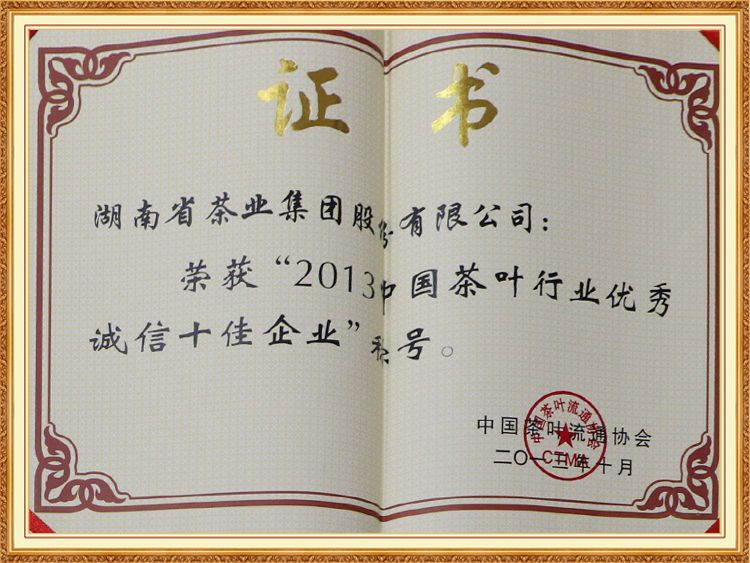 证书
湖南省茶业集团股份有限公司：
荣获“2013中国茶叶行业优秀
诚信十佳企业”称号。
中国茶叶流通协会
二〇一三年十月
中国茶叶流通协会
CTMA